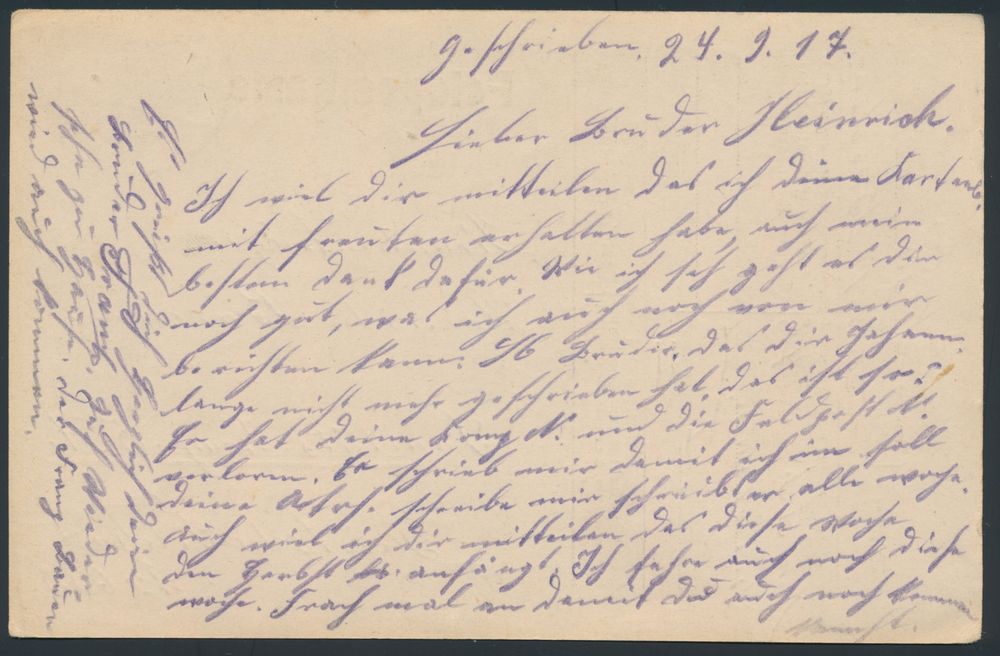 Geschrieben, 24. 9. 17.
Lieber Bruder Heinrich.
Ich wiel dir mitteilen das ich deine Karten
mit freuten erhalten habe, auch mein
besten dank dafür. Wie ich seh geht es dir
noch gut, was ich auch noch von mir
berichten kann. Bruder, das dir Johann
lange nicht mehr geschrieben hat, das ist so?
Er hat deine Komp N. und die Feldpost N.
verloren. Er schrieb mir damit ich im soll
deine Adrs. schreibe mir schreibt er alle woche.
Auch wiel ich dir mitteilen das diese Woche
den Herbst anfängt. Ich fahre auch noch diese
woche. Frach mal an damit du auch noch kommen
kannst.
Es grüßt dich herzlich dein
Bruder Auf Wieder
sehe zu Hause. der Franz
wird auch kommen.